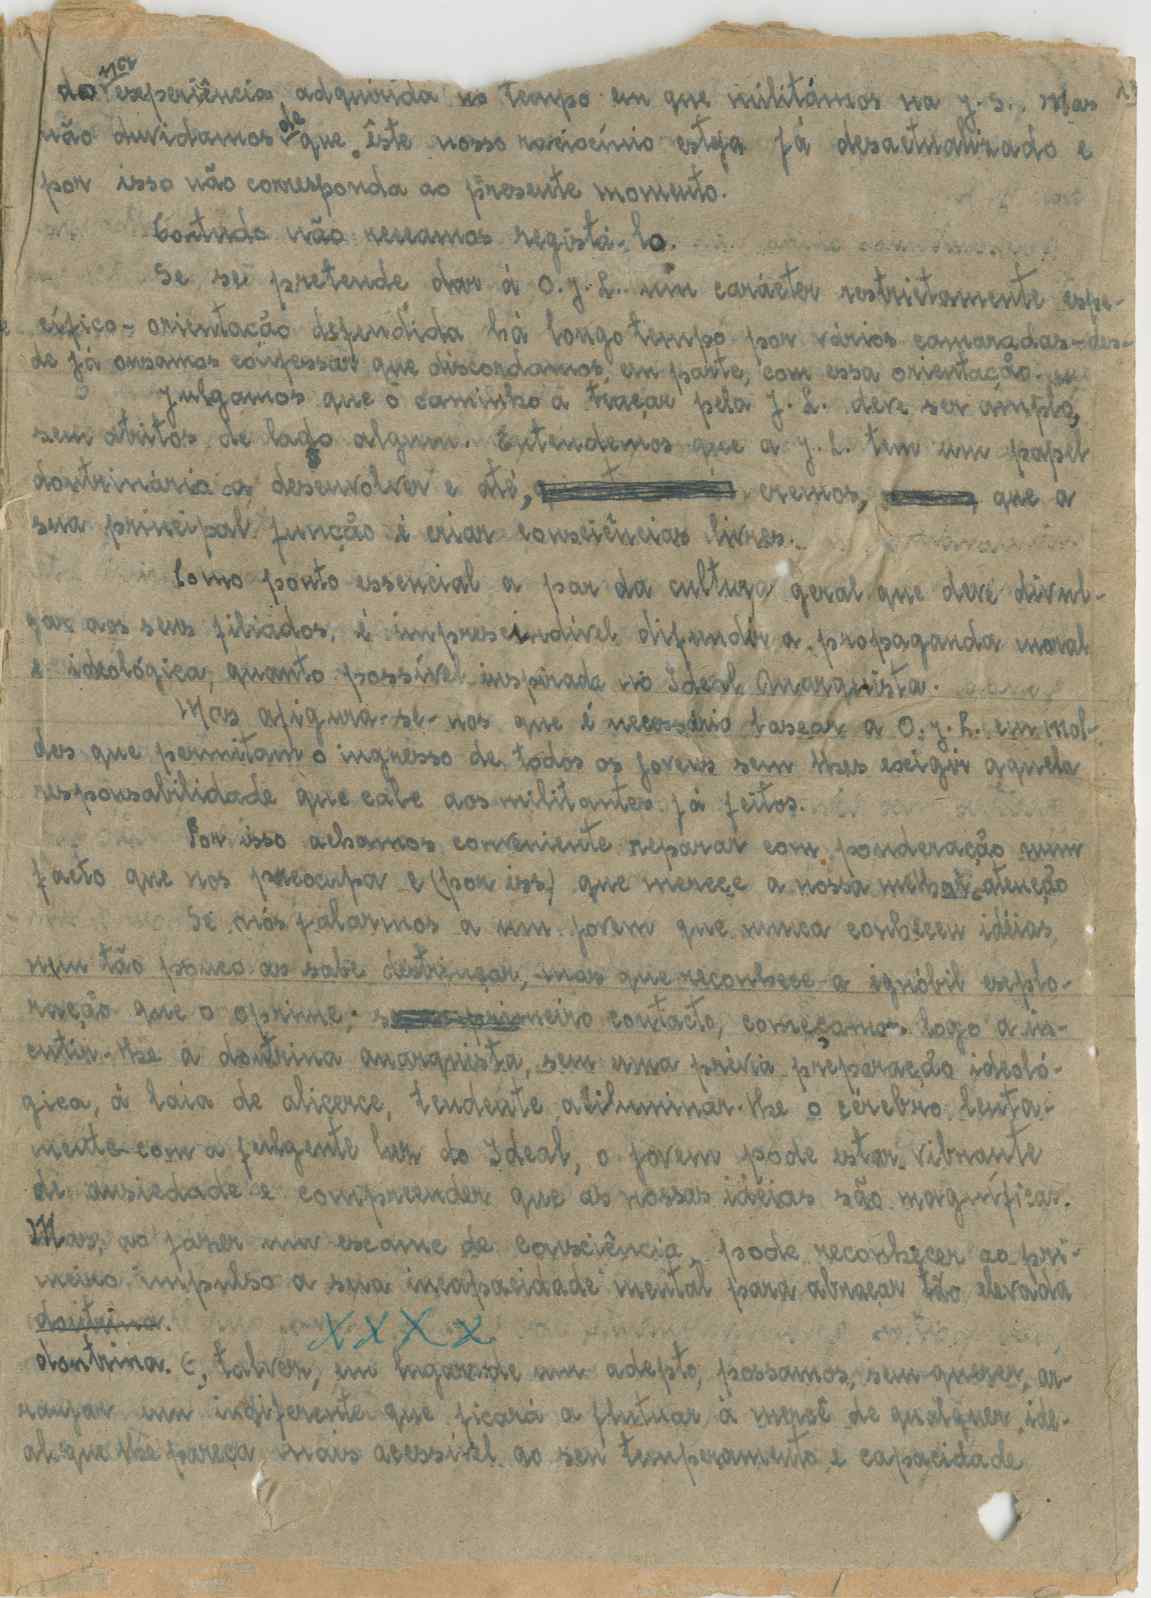 do na experiência, adquirida no tempo em que militámos na J. S.. Mas
não duvidamos de que êste nosso raciocínio esteja já desactualizado e
por isso não corresponda ao presente momento.
Contudo não receamos registá-lo.
Se se pretende dar á O. J. L. um carácter restrictamente espe-
cífico - orientação defendida há longo tempo por vários camaradas - des-
de já ousamos confessar que discordamos, em parte, com essa orientação.
Julgamos que o caminho a traçar pela J. L. deve ser amplo,
sem atritos de lado algum. Entendemos que a J. L. tem um papel
doutrinário a desenvolver e até, cremos, que a
sua principal função é criar consciências livres.
Como ponto essencial a par da cultura geral que deve divul-
gar aos seus filiados, é imprescindível difundir a propaganda moral
e ideológica, quanto possível inspirada no Ideal Anarquista.
Mas afigura-se-nos que é necessário basear a O. J. L. em mol-
des que permitam o ingresso de todos os jovens sem lhes exigir aquela
responsabilidade que cabe aos militantes já feitos.
Por isso achamos conveniente reparar com ponderação num
facto que nos preocupa e (por isso) que merece a nossa melhor atenção
Se nós falarmos a um jovem que nunca conheceu idéias,
nem tão pouco as sabe destrinçar, mas que reconhece a ignóbil explo-
ração que o oprime; se primeiro contacto, começamos logo a in-
cutir-lhe a doutrina anarquista, sem uma prévia preparação ideoló-
gica, á laia de alicerce, tendente a iluminar-lhe o cérebro lenta-
mente com a fulgente luz do Ideal, o jovem pode estar vibrante
de ansiedade e compreender que as nossas idéias são magníficas.
Mas, ao fazer um exame de consciência, pode reconhecer ao pri-
meiro impulso a sua incapacidade mental para abraçar tão elevada
doutrina.
X X X X
doutrina. E, talvez, em lugar de um adepto, possamos, sem querer, ar-
ranjar um indiferente que ficará a flutuar á mercê de qualquer ide-
al que lhe pareça mais acessível ao seu temperamento e capacidade